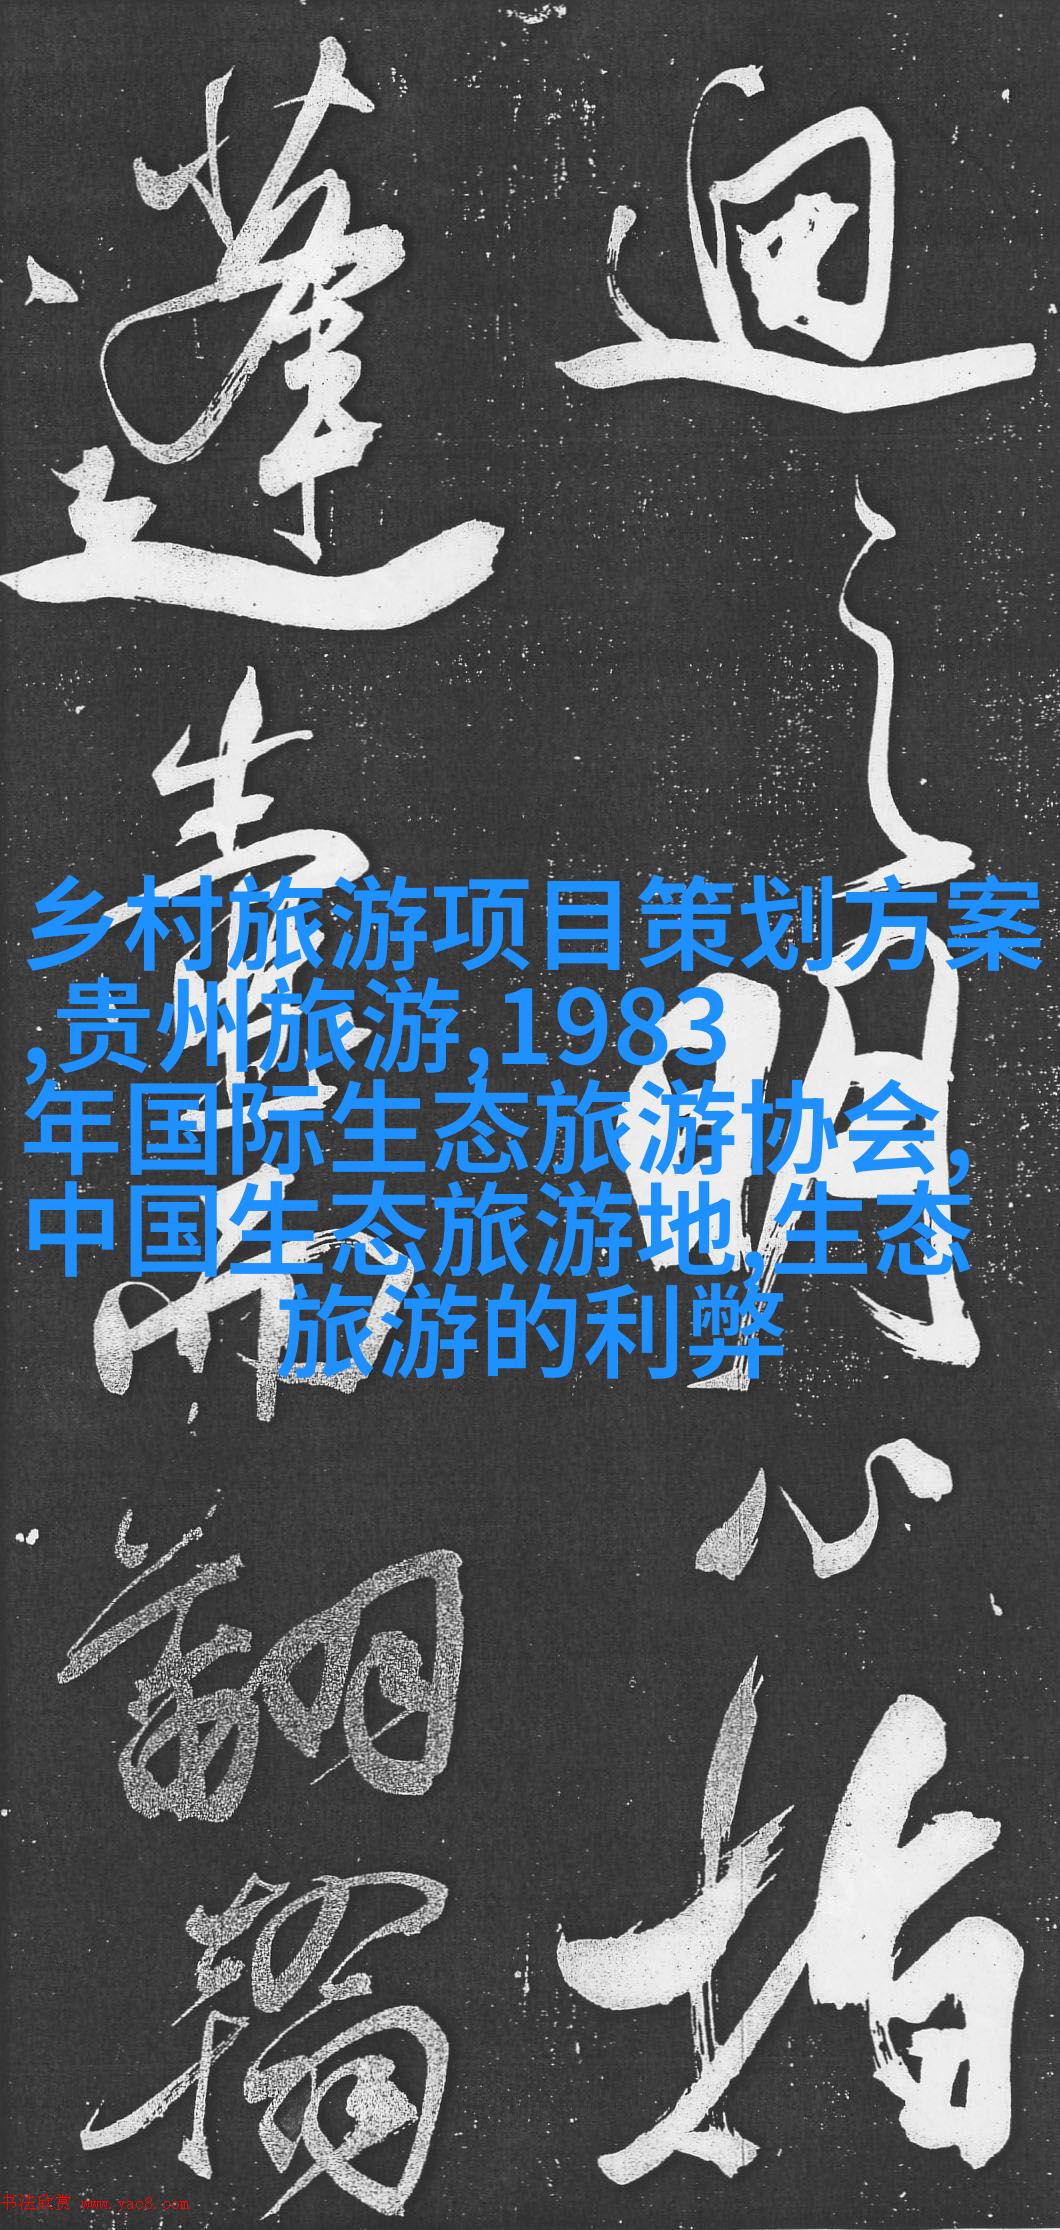 迴
之
明
心
指
蓬
壷
而
翻
翰
乡村旅游项目策划方案
,贵州旅游,1983
年国际生态旅游协会,
中国生态旅游地,生态
旅游的利弊
书法欣赏 www.yac8.com